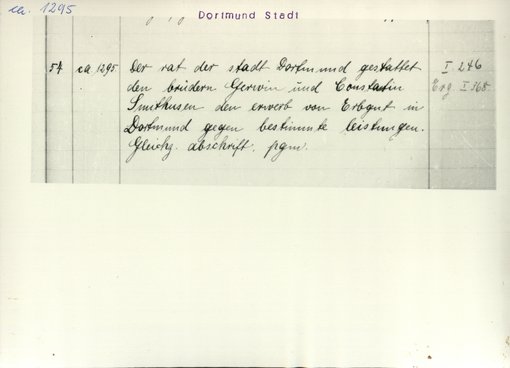 ca. 1295
Dortmund Stadt
57 ca 1295. Der rat der stadt Dortmund gestattet I 246
den brüdern Gerwin und Constantin Erg I 368
Smithusen den erwerb von Erbgut in
Dortmund gegen bestimmte leistungen.
Gleichz. abschrift. pgm.